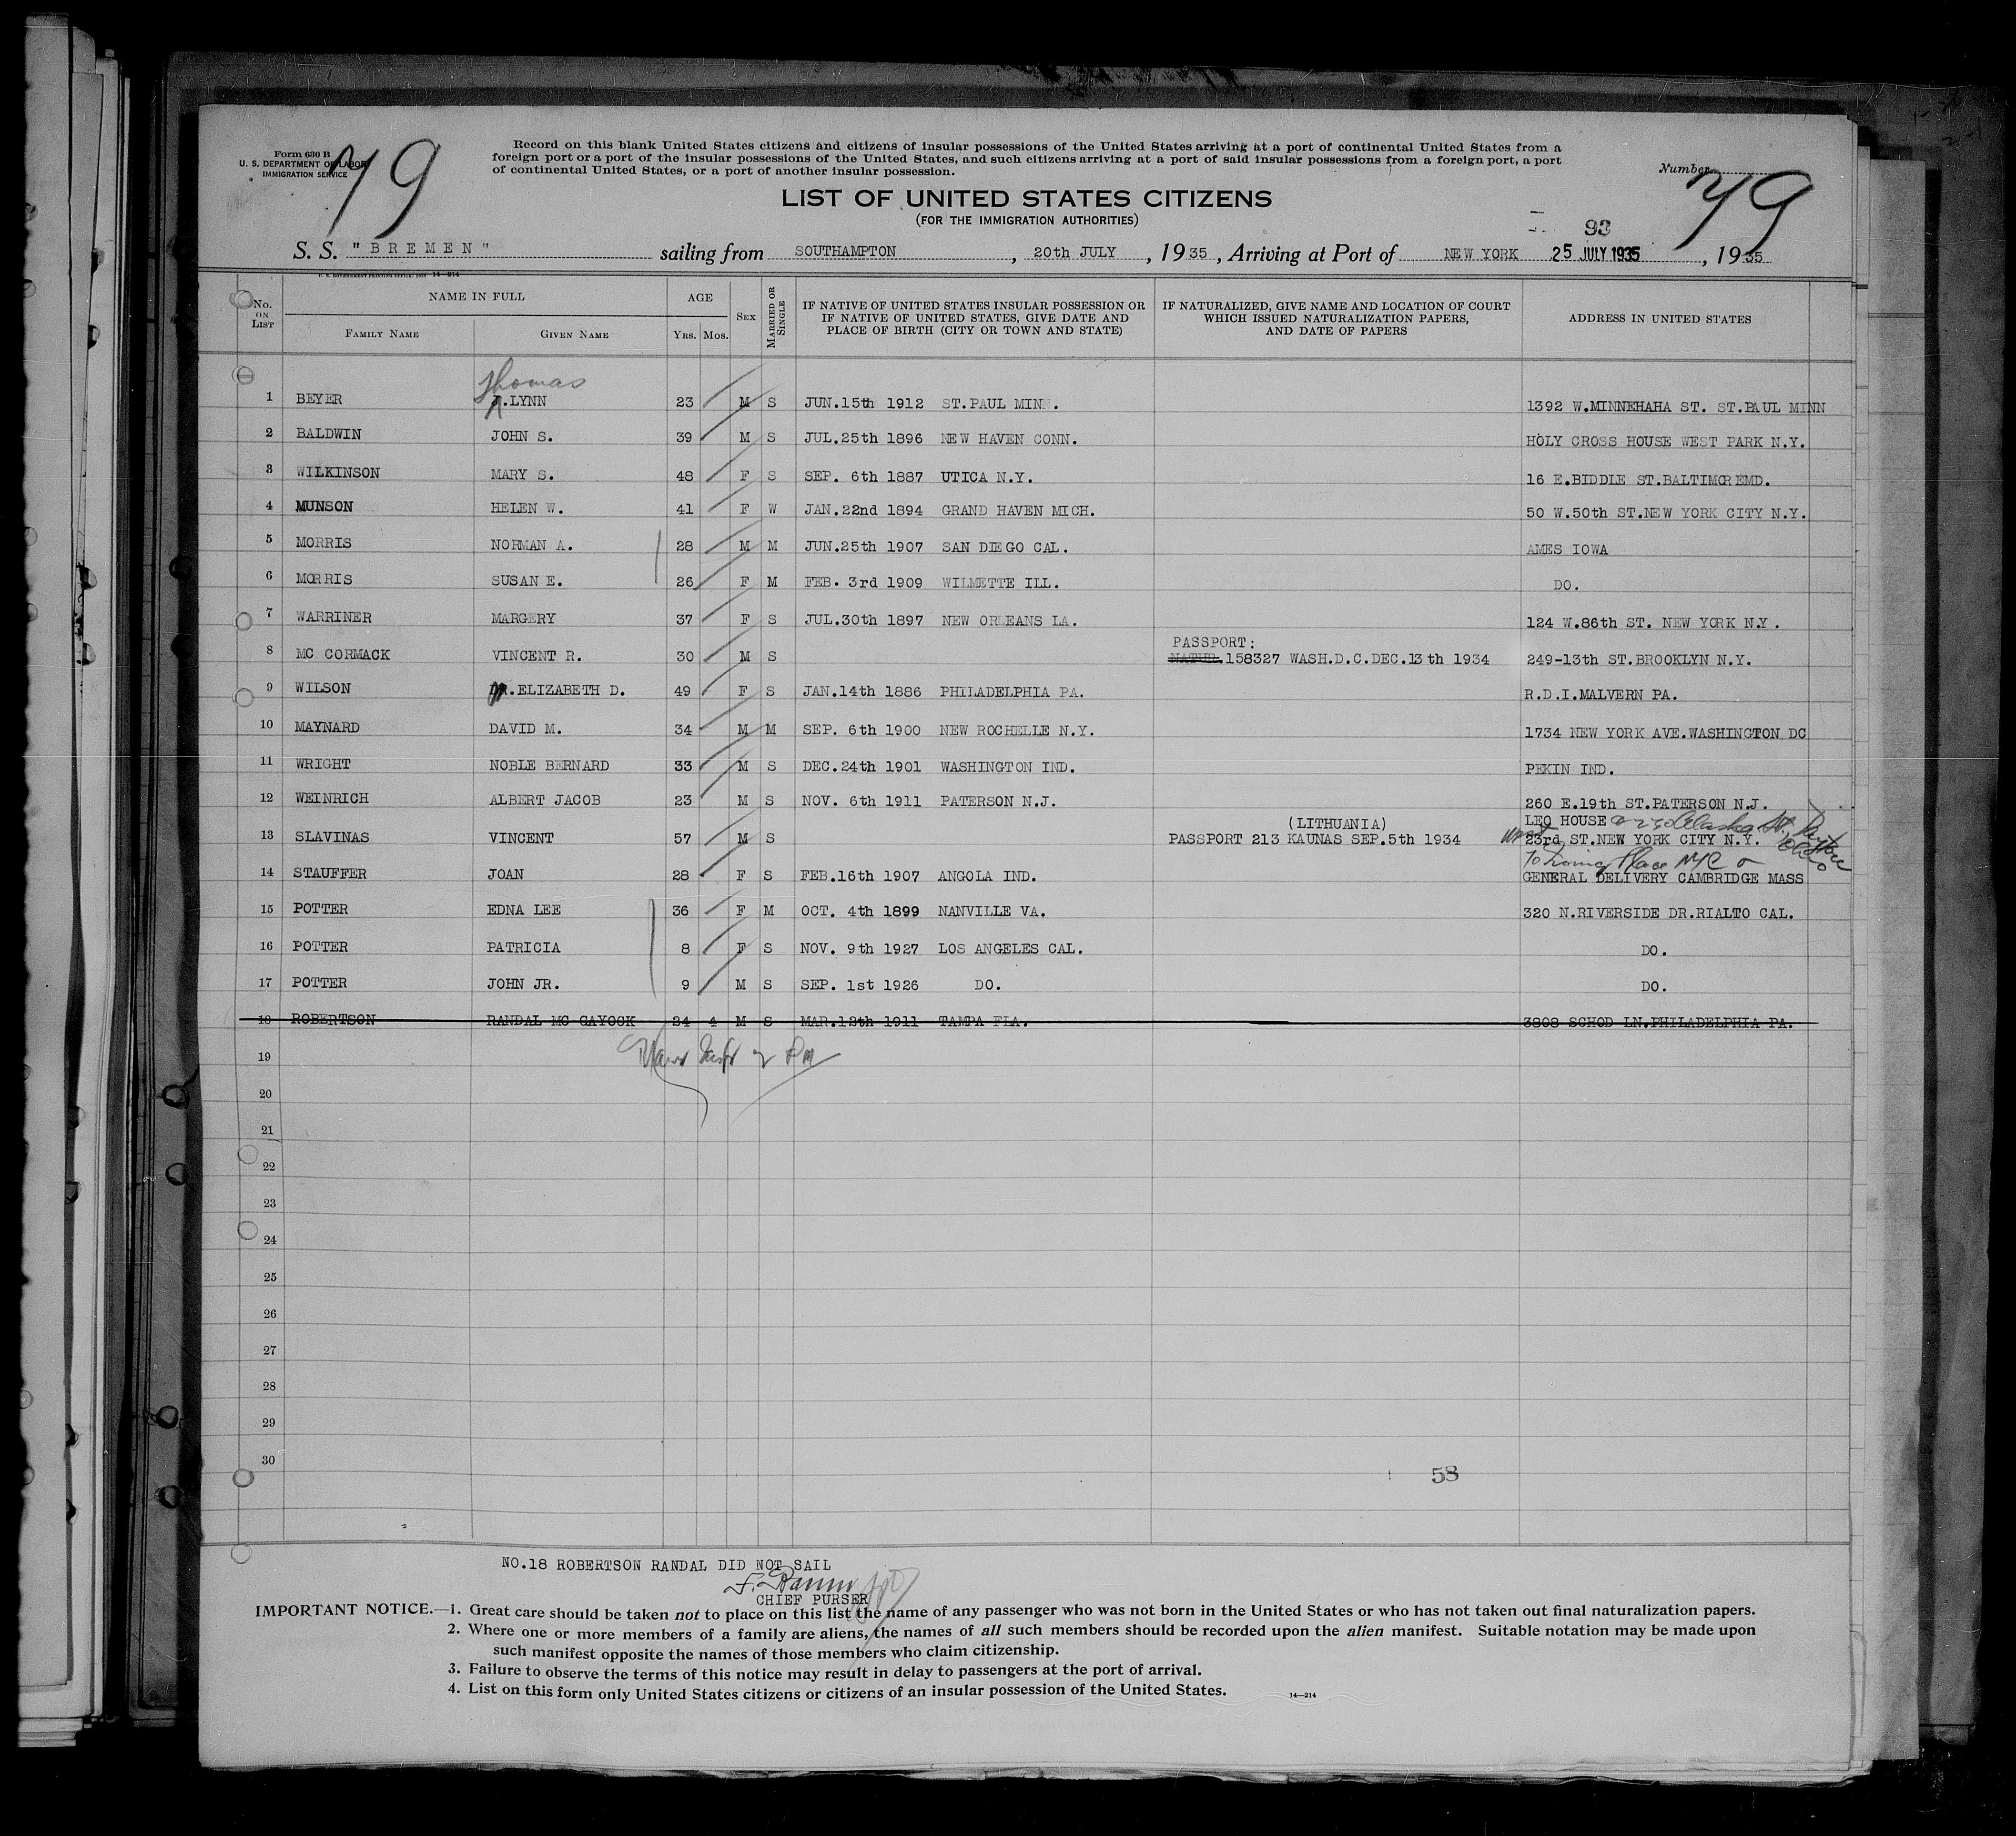 Form 630 B
U. S. DEPARTMENT OF LABOR
IMMIGRATION SERVICE
79
Record on this blank United States citizens and citizens of insular possessions of the United States arriving at a port of continental United States from a
foreign port or a port of the insular possessions of the United States, and such citizens arriving at a port of said insular possessions from a foreign port, a port
of continental United States, or a port of another insular possession.
Number
79
LIST OF UNITED STATES CITIZENS
(FOR THE IMMIGRATION AUTHORITIES)
93
S. S. "BREMEN" sailing from SOUTHAMPTON, 20th JULY, 1935, Arriving at Port of NEW YORK 25 JULY 1935, 1935
No. ON LIST NAME IN FULL FAMILY NAME GIVEN NAME AGE YRS. MOS. SEX MARRIED OR SINGLE IF NATIVE OF UNITED STATES INSULAR POSSESSION OR IF NATIVE OF UNITED STATES, GIVE DATE AND PLACE OF BIRTH (CITY OR TOWN AND STATE) IF NATURALIZED, GIVE NAME AND LOCATION OF COURT WHICH ISSUED NATURALIZATION PAPERS, AND DATE OF PAPERS ADDRESS IN UNITED STATES
Thomas
1 BEYER T.LYNN 23 M S JUN.15th 1912 ST.PAUL MINN. 1392 W.MINNEHAHA ST. ST.PAUL MINN
2 BALDWIN JOHN S. 39 M S JUL.25th 1896 NEW HAVEN CONN. HOLY CROSS HOUSE WEST PARK N.Y.
3 WILKINSON MARY S. 48 F S SEP. 6th 1887 UTICA N.Y. 16 E.BIDDLE ST.BALTIMOREMD.
4 MUNSON HELEN W. 41 F W JAN.22nd 1894 GRAND HAVEN MICH. 50 W.50th ST.NEW YORK CITY N.Y.
5 MORRIS NORMAN A. 28 M M JUN.25th 1907 SAN DIEGO CAL. AMES IOWA
6 MORRIS SUSAN E. 26 F M FEB. 3rd 1909 WILMETTE ILL. DO.
7 WARRINER MARGERY 37 F S JUL.30th 1897 NEW ORLEANS LA. 124 W.86th ST. NEW YORK N.Y.
PASSPORT:
8 MC CORMACK VINCENT R. 30 M S NATUR.158327 WASH.D.C.DEC.13th 1934 249-13th ST.BROOKLYN N.Y.
9 WILSON DR.ELIZABETH D. 49 F S JAN.14th 1886 PHILADELPHIA PA. R.D.I.MALVERN PA.
10 MAYNARD DAVID M. 34 M M SEP. 6th 1900 NEW ROCHELLE N.Y. 1734 NEW YORK AVE.WASHINGTON DC
11 WRIGHT NOBLE BERNARD 33 M S DEC.24th 1901 WASHINGTON IND. PEKIN IND.
12 WEINRICH ALBERT JACOB 23 M S NOV. 6th 1911 PATERSON N.J. 260 E.19th ST.PATERSON N.J.
(LITHUANIA) LEO HOUSE Alaska St. Dayton
13 SLAVINAS VINCENT 57 M S PASSPORT 213 KAUNAS SEP.5th 1934 West 23rd ST.NEW YORK CITY N.Y. Ohio
Place NYC
14 STAUFFER JOAN 28 F S FEB.16th 1907 ANGOLA IND. GENERAL DELIVERY CAMBRIDGE MASS
15 POTTER EDNA LEE 36 F M OCT. 4th 1899 NANVILLE VA. 320 N.RIVERSIDE DR.RIALTO CAL.
16 POTTER PATRICIA 8 F S NOV. 9th 1927 LOS ANGELES CAL. DO.
17 POTTER JOHN JR. 9 M S SEP. 1st 1926 DO. DO.
18 ROBERTSON RANDAL MC GAYOCK 24 4 M S MAR.12th 1911 TAMPA FLA. 3808 SCHOD LN.PHILADELPHIA PA.
19
20
21
22
23
24
25
26
27
28
29
30
58
NO.18 ROBERTSON RANDAL DID NOT SAIL
CHIEF PURSER
IMPORTANT NOTICE.—1. Great care should be taken not to place on this list the name of any passenger who was not born in the United States or who has not taken out final naturalization papers.
2. Where one or more members of a family are aliens, the names of all such members should be recorded upon the alien manifest. Suitable notation may be made upon
such manifest opposite the names of those members who claim citizenship.
3. Failure to observe the terms of this notice may result in delay to passengers at the port of arrival.
4. List on this form only United States citizens or citizens of an insular possession of the United States.
14—214